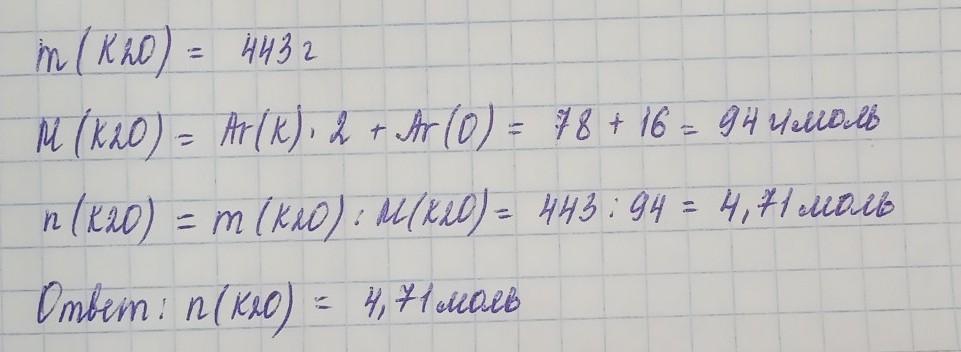 m(K2O) = 443 г
M(K2O) = Ar(K) · 2 + Ar(O) = 78 + 16 = 94 г/моль
n(K2O) = m(K2O) : M(K2O) = 443 : 94 = 4,71 моль
Ответ: n(K2O) = 4,71 моль